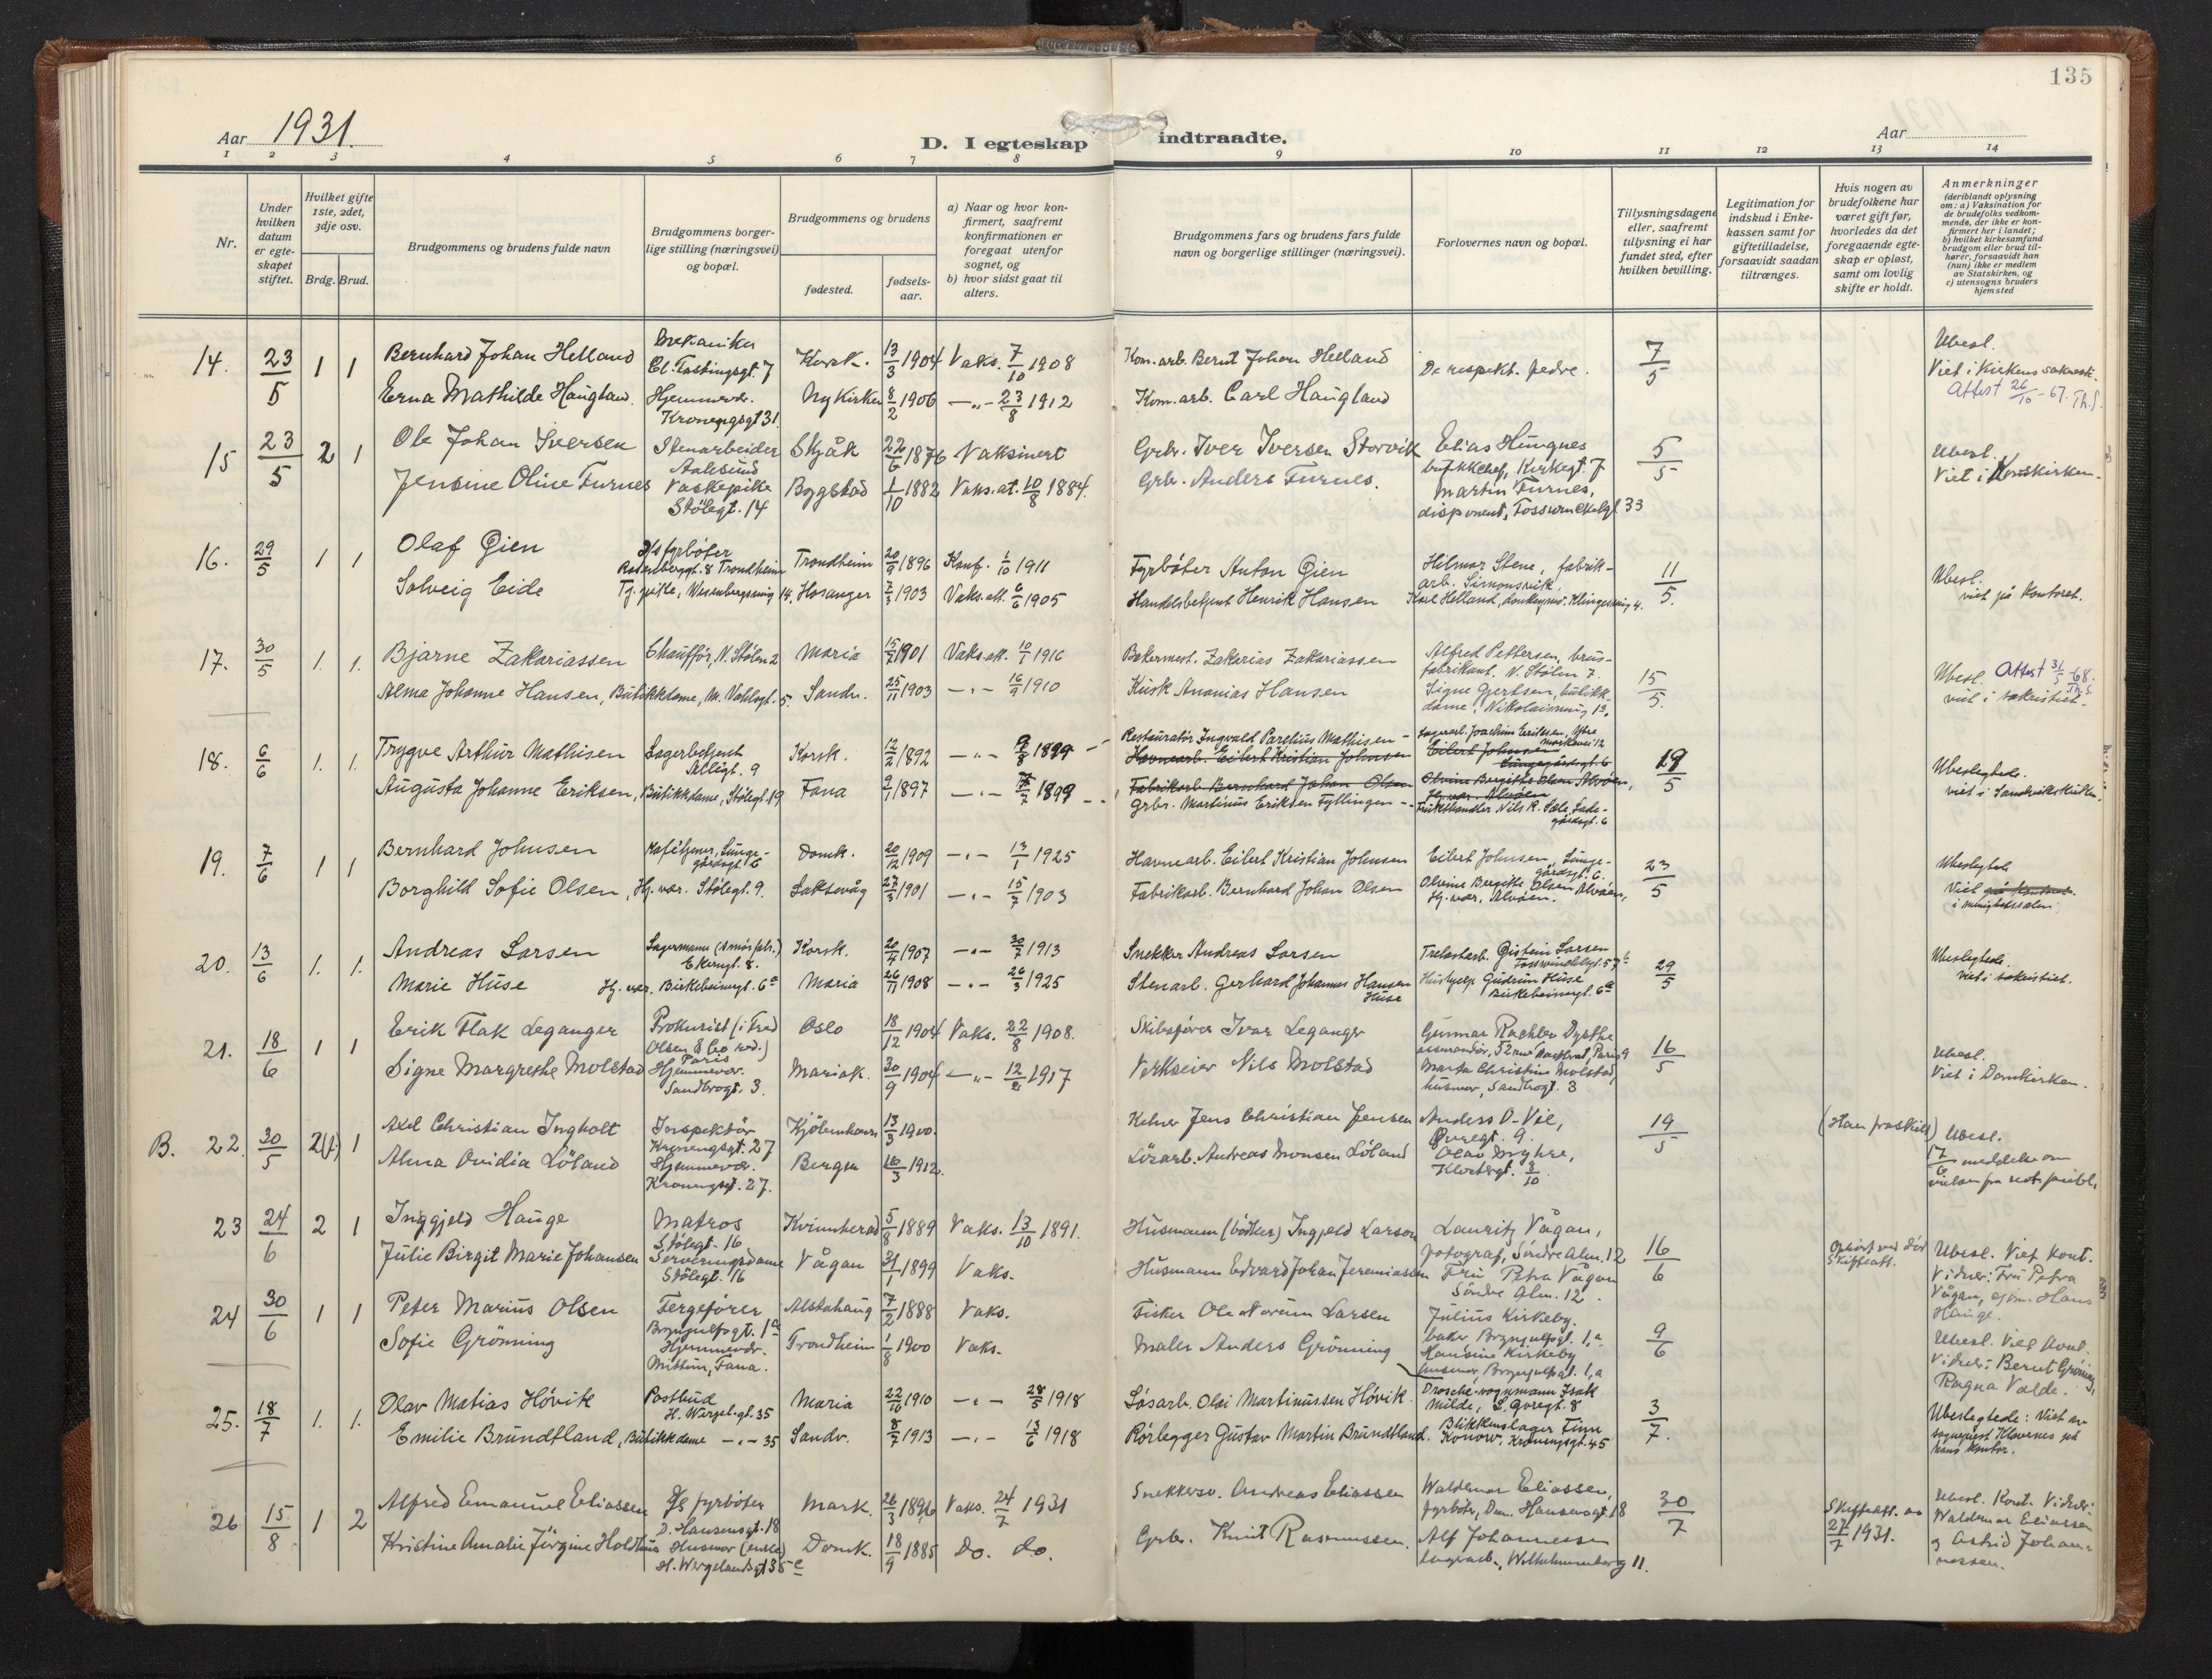 135
Aar 1931.
D. I egteskap indtraadte.
Aar
1 2 3 4 5 6 7 8 9 10 11 12 13 14
Nr.
Under hvilken datum er egteskapet stiftet.
Hvilket gifte 1ste, 2det, 3dje osv.
Brdg. Brud.
Brudgommens og brudens fulde navn
Brudgommens borgerlige stilling (næringsvei) og bopæl.
Brudgommens og brudens
fødested.
fødselsaar.
a) Naar og hvor konfirmert, saafremt konfirmationen er foregaat utenfor sognet, og
b) hvor sidst gaat til alters.
Brudgommens fars og brudens fars fulde navn og borgerlige stillinger (næringsvei).
Forlovernes navn og bopæl.
Tillysningsdagene eller, saafremt tillysning ei har fundet sted, efter hvilken bevilling.
Legitimation for indskud i Enkekassen samt for giftetilladelse, forsaavidt saadan tiltrænges.
Hvis nogen av brudefolkene har været gift før, hvorledes da det foregaaende egteskap er opløst, samt om lovlig skifte er holdt.
Anmerkninger (deriblandt oplysning om: a) Vaksination for de brudefolks vedkommende, der ikke er konfirmert her i landet; b) hvilket kirkesamfund brudgom eller brud tilhører, forsaavidt han (hun) ikke er medlem av Statskirken, og c) utensogns bruders hjemsted
14. 23/5 1 1 Bernhard Johan Helland Mekaniker Cl. Fastingsgt. 7 Korsk. 13/3 1904 Vaks. 7/10 1908 Kom. arb. Bernt Johan Helland De respekt. fedre. 7/5 Ubesl. Viet i Kirkens sakresti.
Erna Mathilde Haugland Hjemmevær. Kroningsgt 31 Nykirken 8/2 1906 -"- 23/8 1912 Kom. arb. Carl Haugland Attest 26/10-67. Th.S.
15 23/5 2 1 Ole Johan Iversen Stenarbeider Aalesund Skjåk 22/6 1876 Vaksinert Grbr. Iver Iversen Storvik Elias Hungnes butikkchef, Kirkegt. 7 5/5 Ubesl.
Jensine Oline Furnes Vaskepike Stølegt. 14 Bygstad 1/10 1882 Vaks.at. 10/8 1884. Grb. Anders Furnes. Martin Furnes, disponent, 33 Viet i Korskirken
16. 29/5 1 1 Olaf Øien D/s fyrbøter Rosenborggt. 8 Trondheim Trondheim 20/9 1896 Konf. 1/10 1911 Fyrbøter Anton Øien Hilmar Stene, fabrikarb. Simonsvik, 11/5. Ubesl.
Solveig Eide Tj. pike, Wesenbergsmug 14, Hosanger 7/3 1903 Vaks.att. 6/6 1905 Handelsbetjent Henrik Hansen Karl Helland, 4. viet på kontoret.
17. 30/5 1. 1. Bjarne Zakariassen Chauffør, N. Stølen 2 Maria 15/7 1901 Vaks.att. 10/1 1916 Bakermest. Zakarias Zakariassen Alfred Pettersen, brusfabrikant. N. Stølen 7. 15/5. Ubesl. Attest 31/5 68. Th.S.
Alma Johanne Hansen, Butikkdame, M. Vahlsgt. 5. Sandv. 25/11 1903 -"- 16/9 1910 Kusk Ananias Hansen Signe Gjertsen, butikkdame, Nikolaismug 13. viet i sakristiet.
18. 6/6 1. 1. Trygve Arthur Mathisen Lagerbetjent Korsk. 12/2 1892 -"- 9/8 1899 Restauratør Ingvald Parelius Mathisen Havnearb. Eilert Kristian Johnsen Lagerarb. Joachim Eriksen, Eilert Johnsen Lungegårdsgt. 6 19/5 Ubeslegtede.
Augusta Johanne Eriksen, Butikkdame, Stølegt. 19 Fana 9/1 1897 -"- 1899 Fabrikarb. Bernhard Johan Olsen Grbr. Martinus Eriksen Fyllingen Olvine Bergitte Olsen, Alvøen, Hj. vær. Alvøen Frukthandler Nils R. Sæle, Ladegårdsgt. 6 viet i Sandvikskirken.
19. 7/6 1 1 Bernhard Johnsen Kafétjener, Lungegårdsgt. 6 Domk. 20/12 1909 -"- 13/1 1925 Havnearb. Eilert Kristian Johnsen Eilert Johnsen, Lungegårdsgt. 6. 23/5 Ubeslegtede
Borghild Sofie Olsen, Hj. vær. Stølegt. 9. Laksevåg 27/3 1901 -"- 15/7 1903 Fabrikarb. Bernhard Johan Olsen Olvine Bergitte Olsen, Alvøen, Hj. vær, Alvøen. Viet på kontoret. i menighetssalen
20. 13/6 1. 1. Andreas Larsen Lagermann (smørfabr.) Ekrengt. 8. Korsk. 20/4 1907 -"- 30/7 1913 Snekker Andreas Larsen Trelastarb. Øistein Larsen 29/5 Ubeslegtede.
Marie Huse Hj. vær. Birkebeinergt. 6a Maria 26/11 1908 -"- 26/3 1925 Stenarb. Gerhard Johannes Hansen Huse Hushjelp Gudrun Huse Birkebeinergt. 6a viet i sakristiet.
21. 18/6 1 1 Erik Flak Leganger Prokurist (i Fred Olsen & Co red.) Paris Oslo 18/12 1904 Vaks. 22/8 1908. Skibsfører Ivar Leganger Gunnar Dysthe assurandør, Paris 9 16/5 Ubesl.
Signe Margrethe Molstad Hjemmevær. Sandbrogt. 3. Mariak. 30/9 1904 -"- 12/2 1917 Verkseier Nils Molstad Marta Christine Molstad, husmor, Sandbrogt. 3 Viet i Domkirken.
B. 22. 30/5 2(f.) 1 Axel Christian Ingholt Inspektør Kroningsgt. 27 Kjøbenhavn 13/3 1900. Kelner Jens Christian Jensen Anders O. Vie, Øvregt. 9. 19/5 (Han fraskilt) Ubesl.
Alma Ovidia Løland Hjemmevær. Kroningsgt. 27. Bergen 16/3 1912. Løsarb. Andreas Monsen Løland Olav Myhre, Klostergt. 17/6 meddelelse om vielsen fra
23 24/6 2 1 Inggjeld Hauge Matros Stølegt. 16 Kvinnherad 5/8 1889 Vaks. 13/10 1891. Husmann (bødker) Ingjeld Larsen Lauritz Vågan, fotograf, Søndre Alm. 12 16/6 Ophørt ved død Skifteatt. Ubesl. Viet kont.
Julie Birgit Marie Johansen Serveringsdame Stølegt. 16 Vågan 31/1 1899 Vaks. Husmann Edvard Johan Jeremiassen Fru Petra Vågan Søndre Alm. 12. Vidner: Fru Petra Vågan, sjøm. Hans Hauge.
24 30/6 1 1 Peter Marius Olsen Fergefører Brynjulfsgt. 1a Alstahaug 7/2 1888 Vaks. Fisker Ole Norum Larsen Julius Kirkeby. baker Brynjulfsgt. 1,a 9/6 Ubesl. Viet kont.
Sofie Grønning Hjemmevær. Mittun, Fana. Trondheim 1/8 1900 Vaks. Maler Anders Grønning Hansine Kirkeby husmor, Brynjulfsgt. 1,a Vidner: Bernt Grønning, Ragna Valde.
25. 18/7 1. 1. Olav Matias Høvik Postbud H. Wergel.gt. 35 Maria 22/10 1910 -"- 28/5 1918 Løsarb. Olai Martinussen Høvik Drosche-vognmann Isak Milde, L. Øvregt. 8 3/7. Ubeslegtede: Viet av
Emilie Brundtland, Butikkdame -"- 35 Sandv. 8/7 1913 -"- 13/6 1918 Rørlegger Gustav Martin Brundtland. Blikkenslager Finn Konow, Kroningsgt. 45 sogneprest Klovenes på hans kontor.
26 15/8 1 2 Alfred Emanuel Eliassen D/s fyrbøter D. Hansensgt. 18 Mark. 26/3 1896 Vaks. 24/7 1931 Snekkersv. Andreas Eliassen Waldemar Eliassen, fyrbøt, Dam. Hansensgt. 18 30/7 Skifteatt. av 27/7 1931. Ubesl. Kont. Vidner:
Kristine Amalie Jørgine Holdhus Husmor (enke) H. Wergelandsgt 35 c Domk. 18/9 1885 do. do. Grbr. Knut Rasmussen. Alf Johannessen lagerarb., Wilhelmineborg 11. Waldemar Eliassen og Astrid Johannessen.